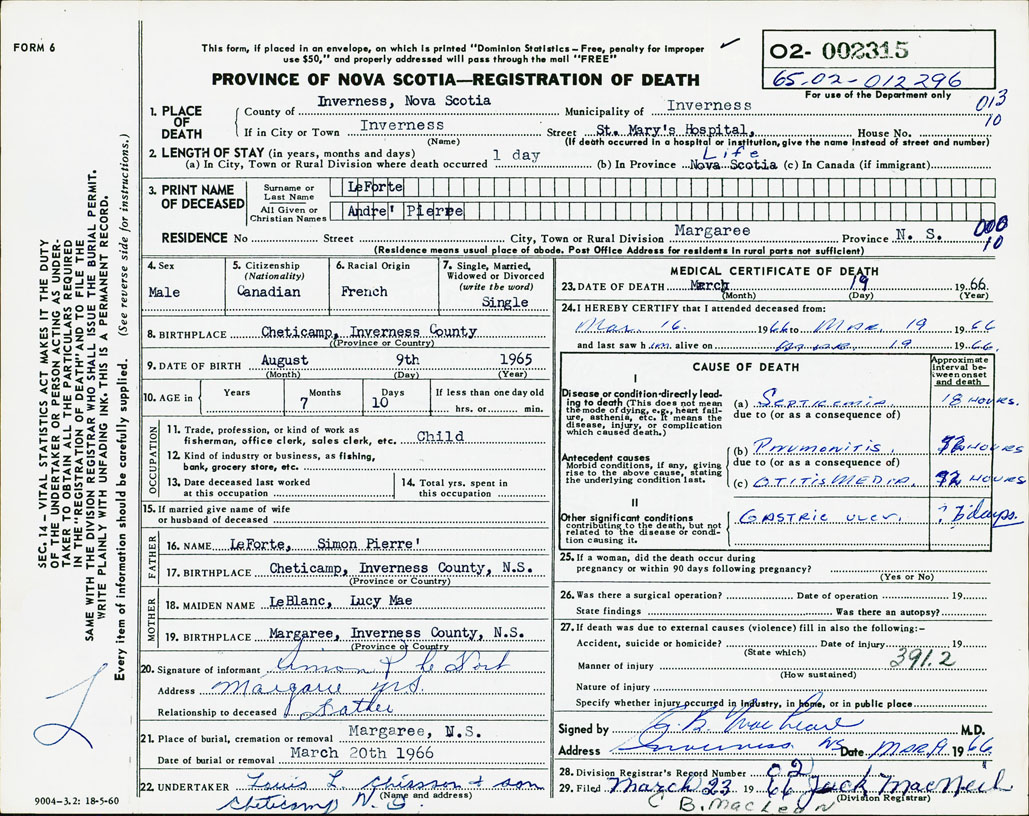 FORM 6
This form, if placed in an envelope, on which is printed "Dominion Statistics – Free, penalty for improper
use $50," and properly addressed will pass through the mail "FREE"
02- 002315
65-02-012296
For use of the Department only
PROVINCE OF NOVA SCOTIA—REGISTRATION OF DEATH
013
10
1. PLACE OF DEATH
County of Inverness, Nova Scotia Municipality of Inverness
If in City or Town Inverness Street St. Mary's Hospital, House No.
(Name) (If death occurred in a hospital or institution, give the name instead of street and number)
2. LENGTH OF STAY (in years, months and days)
Life
(a) In City, Town or Rural Division where death occurred 1 day (b) In Province Nova Scotia (c) In Canada (if immigrant)
3. PRINT NAME OF DECEASED
Surname or Last Name LeForte
All Given or Christian Names Andre' Pierre
000
10
RESIDENCE No Street City, Town or Rural Division Margaree Province N. S.
(Residence means usual place of abode. Post Office Address for residents in rural parts not sufficient)
4. Sex
Male
5. Citizenship
(Nationality)
Canadian
6. Racial Origin
French
7. Single, Married,
Widowed or Divorced
(write the word)
Single
8. BIRTHPLACE Cheticamp, Inverness County
(Province or Country)
9. DATE OF BIRTH August 9th 1965
(Month) (Day) (Year)
10. AGE in Years Months Days If less than one day old
7 10 hrs. or min.
OCCUPATION
11. Trade, profession, or kind of work as
fisherman, office clerk, sales clerk, etc. Child
12. Kind of industry or business, as fishing,
bank, grocery store, etc.
13. Date deceased last worked
at this occupation
14. Total yrs. spent in
this occupation
15. If married give name of wife
or husband of deceased
FATHER
16. NAME LeForte, Simon Pierre'
17. BIRTHPLACE Cheticamp, Inverness County, N.S.
(Province or Country)
MOTHER
18. MAIDEN NAME LeBlanc, Lucy Mae
19. BIRTHPLACE Margaree, Inverness County, N.S.
(Province or Country)
20. Signature of informant Simon P Le Fort
Address Margaree N.S.
Relationship to deceased Father
21. Place of burial, cremation or removal Margaree, N.S.
Date of burial or removal March 20th 1966
22. UNDERTAKER Louis L. Chiasson & son
(Name and address)
Cheticamp N.S.
MEDICAL CERTIFICATE OF DEATH
23. DATE OF DEATH March 19 1966
(Month) (Day) (Year)
24. I HEREBY CERTIFY that I attended deceased from:
Mar. 16 1966 to Mar. 19 1966
and last saw him alive on Mar. 19 1966.
CAUSE OF DEATH
Approximate
interval be-
tween onset
and death
I
Disease or condition directly lead-
ing to death (This does not mean
the mode of dying, e.g., heart fail-
ure, asthenia, etc. It means the
disease, injury, or complication
which caused death.)
(a) Septicemia 18 HOURS.
due to (or as a consequence of)
Antecedent causes
Morbid conditions, if any, giving
rise to the above cause, stating
the underlying condition last.
(b) Pneumonitis. 72 HOURS
due to (or as a consequence of)
(c) OTITIS MEDIA. 72 HOURS
II
Other significant conditions
contributing to the death, but not
related to the disease or condi-
tion causing it.
GASTRIC ULCER. days.
25. If a woman, did the death occur during
pregnancy or within 90 days following pregnancy?
(Yes or No)
26. Was there a surgical operation? Date of operation 19
State findings Was there an autopsy?
27. If death was due to external causes (violence) fill in also the following:-
Accident, suicide or homicide? Date of injury 19
(State which)
391.2
Manner of injury
(How sustained)
Nature of injury
Specify whether injury occurred in industry, in home, or in public place
Signed by C B MacLean M.D.
Address Inverness NS Date MAR 19 1966
28. Division Registrar's Record Number 02
29. Filed March 23 1966 Jack MacNeil
(Division Registrar)
C B. MacLean
SEC. 14 – VITAL STATISTICS ACT MAKES IT THE DUTY
OF THE UNDERTAKER OR PERSON ACTING AS UNDER-
TAKER TO OBTAIN ALL THE PARTICULARS REQUIRED
IN THE "REGISTRATION OF DEATH" AND TO FILE THE
SAME WITH THE DIVISION REGISTRAR WHO SHALL ISSUE THE BURIAL PERMIT.
WRITE PLAINLY WITH UNFADING INK. THIS IS A PERMANENT RECORD.
Every item of information should be carefully supplied. (See reverse side for instructions.)
9004-3.2: 18-5-60